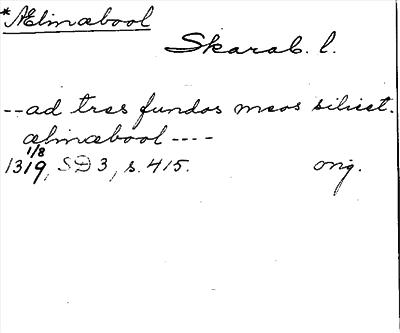 *Ælmæbool
Skarab. l.
--ad tres fundos meos silicet.
ælmæbool ----
1/8
1319, SD 3, s. 415. orig.